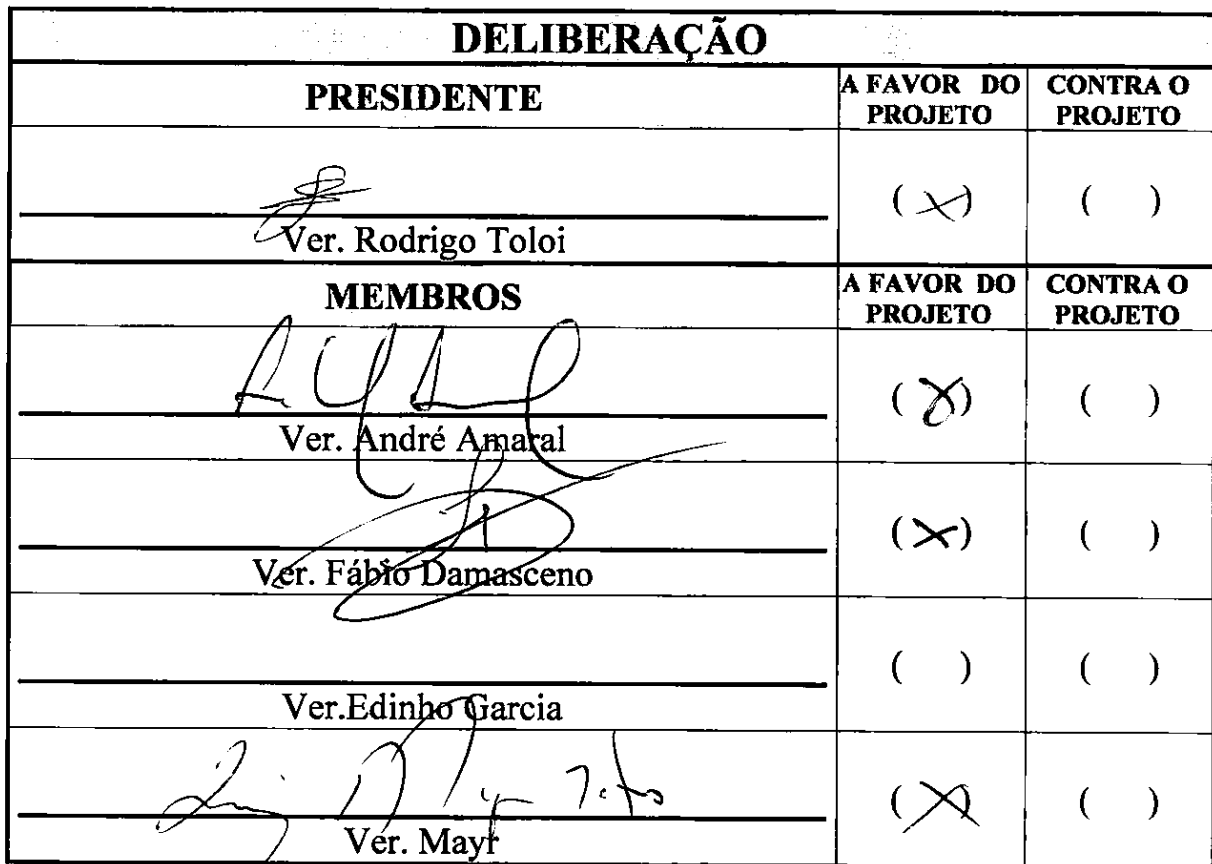 DELIBERAÇÃO
PRESIDENTE
A FAVOR DO PROJETO
CONTRA O PROJETO
( X )
( )
Ver. Rodrigo Toloi
MEMBROS
A FAVOR DO PROJETO
CONTRA O PROJETO
( X )
( )
Ver. André Amaral
( X )
( )
Ver. Fábio Damasceno
( )
( )
Ver.Edinho Garcia
( X )
( )
Ver. Mayr